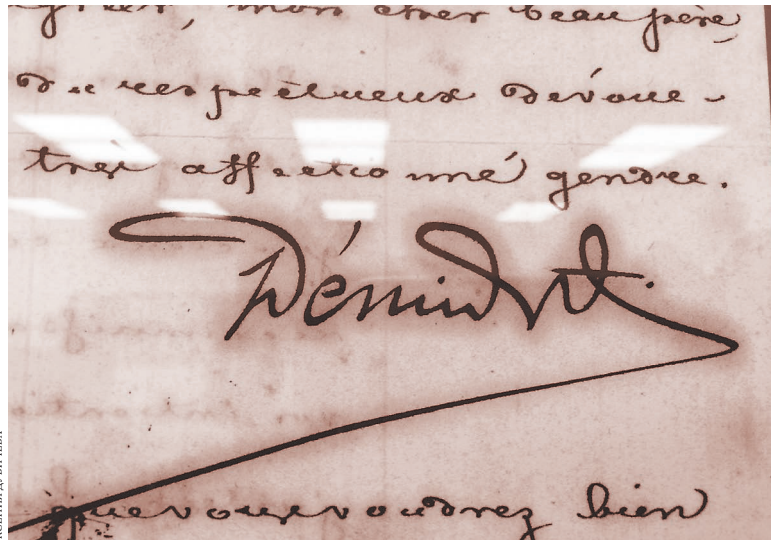 mon cher beau père
du respectueux dévoue-
très affectionné gendre.
Démidoff.
que vous voudrez bien